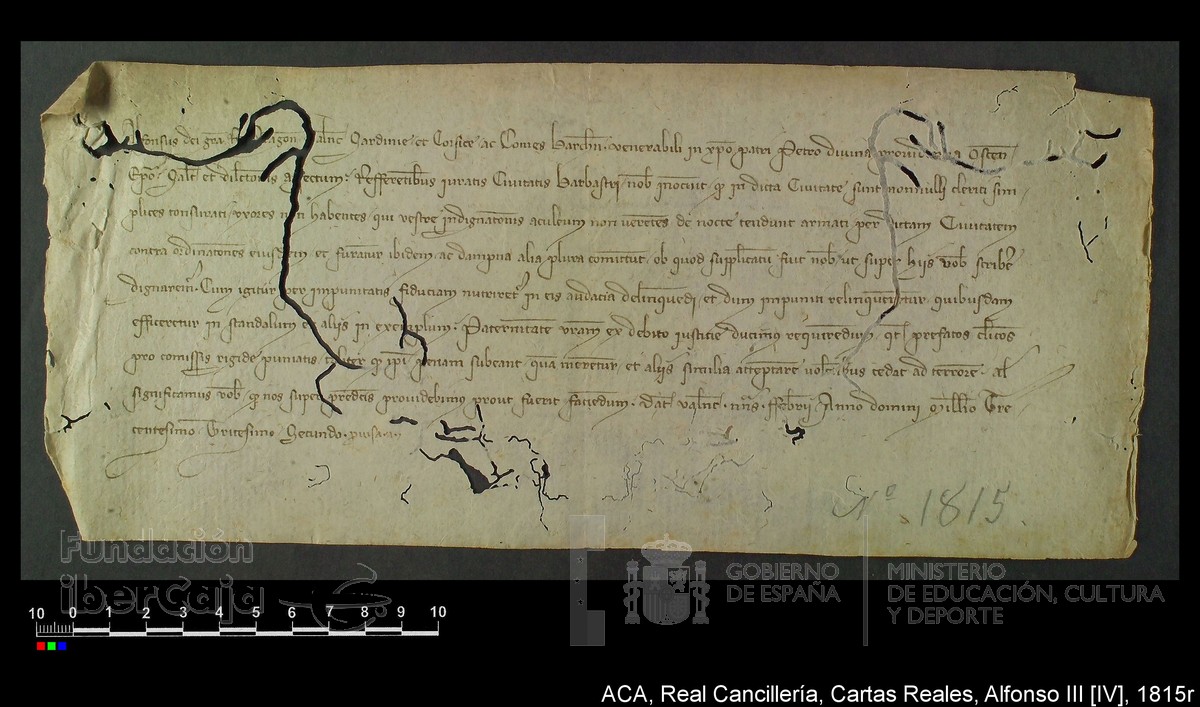 Alfonsus dei gra Rex Aragon Valenc Sardinie et Corsice ac Comes Barchn. venerabili in xpo patri Petro divina providencia Oscen
Epo. Salt et dilectionis affectum. Refferentibus iuratis Civitatis Barbastri nob innotuit qd in dicta Civitate sunt nonnulli clerici sim
plices tonsurati uxores non habentes qui vestre indignationis aculeum non verentes de nocte tendunt armati per dictam Civitatem
contra ordinationes eiusdem et furantur ibidem ac dampna alia plura comittunt ob quod supplicatu fuit nob ut super hiis vob scribe
dignarem. Cum igitur per impunitatis fiduciam nutriret in eis audacia delinquendi et dum impuniti relinquerentur quibusdam
efficeretur in scandalum et aliis in exemplum. Paternitatem vram ex debito iusticie ducimus requirendum qt prefatos clicos
pro comissis rigide puniatis taliter qd ipi penam subeant qua merentur et aliis similia acceptare volentibus cedat ad terrore. Al
significamus vob qd nos super predcis providebimus prout fuerit faciendum. Dat Valenc. nns. ffebrii Anno domini Millio Tre
centesimo Tricesimo Secundo.
Nº 1815.
Fundación
iberCaja
GOBIERNO DE ESPAÑA
MINISTERIO DE EDUCACIÓN, CULTURA Y DEPORTE
10 0 1 2 3 4 5 6 7 8 9 10
ACA, Real Cancillería, Cartas Reales, Alfonso III [IV], 1815r